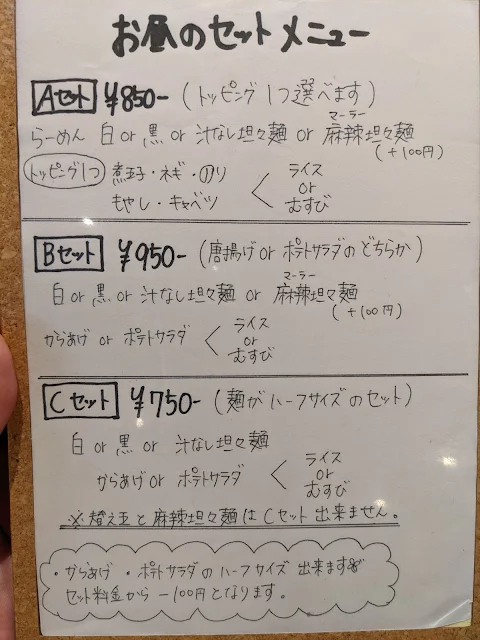 お昼のセットメニュー
Aセット ¥850- (トッピング1つ選べます)
らーめん 白 or 黒 or 汁なし坦々麺 or 麻辣坦々麺
マーラー
(+100円)
トッピング1つ 煮玉子・ネギ・のり
もやし・キャベツ
ライス
or
むすび
Bセット ¥950- (唐揚げ or ポテトサラダのどちらか)
マーラー
白 or 黒 or 汁なし坦々麺 or 麻辣坦々麺
(+100円)
からあげ or ポテトサラダ
ライス
or
むすび
Cセット ¥750- (麺がハーフサイズのセット)
白 or 黒 or 汁なし坦々麺
からあげ or ポテトサラダ
ライス
or
むすび
※替え玉と麻辣坦々麺はCセット出来ません。
・からあげ・ポテトサラダのハーフサイズ出来ます
セット料金から-100円となります。